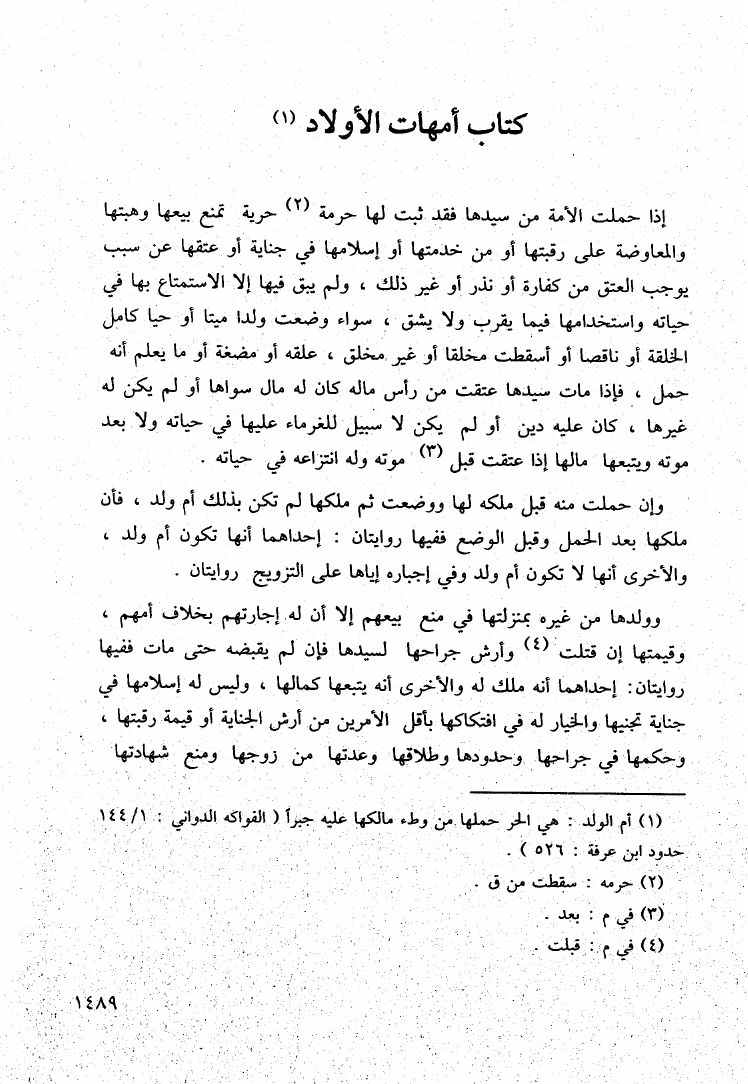 كتاب أمهات الأولاد (١)
إذا حملت الأمة من سيدها فقد ثبت لها حرمة (٢) حرية تمنع بيعها وهبتها
والمعاوضة على رقبتها أو من خدمتها أو إسلامها في جناية أو عتقها عن سبب
يوجب العتق من كفارة أو نذر أو غير ذلك ، ولم يبق فيها إلا الاستمتاع بها في
حياته واستخدامها فيما يقرب ولا يشق ، سواء وضعت ولدا ميتا أو حيا كامل
الخلقة أو ناقصا أو أسقطت مخلقا أو غير مخلق ، علقه أو مضغة أو ما يعلم أنه
حمل ، فإذا مات سيدها عتقت من رأس ماله كان له مال سواها أو لم يكن له
غيرها ، كان عليه دين أو لم يكن لا سبيل للغرماء عليها في حياته ولا بعد
موته ويتبعها مالها إذا عتقت قبل (٣) موته وله انتزاعه في حياته .
وإن حملت منه قبل ملكه لها ووضعت ثم ملكها لم تكن بذلك أم ولد ، فأن
ملكها بعد الحمل وقبل الوضع ففيها روايتان : إحداهما أنها تكون أم ولد ،
والأخرى أنها لا تكون أم ولد وفي إجباره إياها على التزويج روايتان .
وولدها من غيره بمنزلتها في منع بيعهم إلا أن له إجارتهم بخلاف أمهم ،
وقيمتها إن قتلت (٤) وأرش جراحها لسيدها فإن لم يقبضه حتى مات ففيها
روايتان: إحداهما أنه ملك له والأخرى أنه يتبعها كمالها ، وليس له إسلامها في
جناية تجنيها والخيار له في افتكاكها بأقل الأمرين من أرش الجناية أو قيمة رقبتها ،
وحكمها في جراحها وحدودها وطلاقها وعدتها من زوجها ومنع شهادتها
(١) أم الولد : هي الحر حملها من وطء مالكها عليه جبراً ( الفواكه الدواني : ١٤٤/١
حدود ابن عرفة : ٥٢٦ ) .
(٢) حرمه : سقطت من ق .
(٣) في م : بعد .
(٤) في م : قبلت .
١٤٨٩